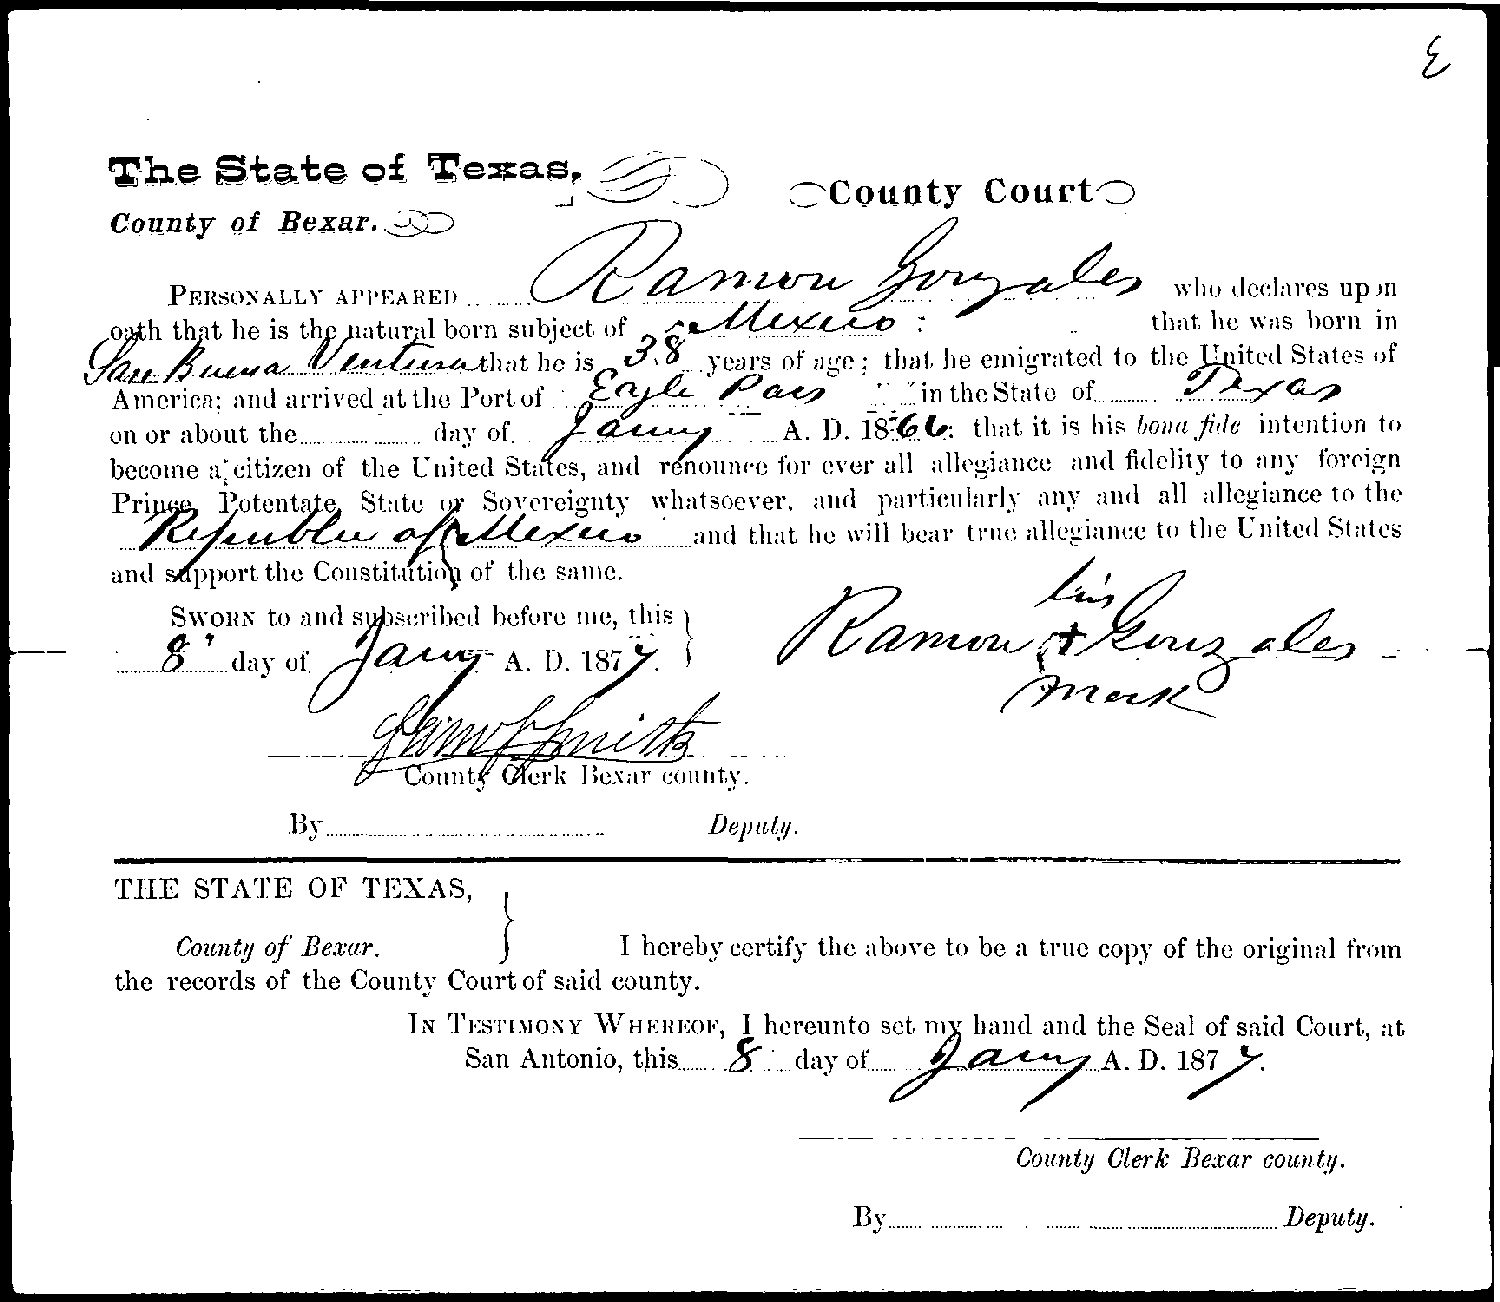 The State of Texas,
County Court
County of Bexar.
PERSONALLY APPEARED Ramon Gonzales who declares upon
oath that he is the natural born subject of Mexico : that he was born in
San Buena Ventura that he is 38 years of age; that he emigrated to the United States of
America; and arrived at the Port of Eagle Pass in the State of Texas
on or about the day of Jany A. D. 1866: that it is his bona fide intention to
become a citizen of the United States, and renounce for ever all allegiance and fidelity to any foreign
Prince, Potentate, State or Sovereignty whatsoever, and particularly any and all allegiance to the
Republic of Mexico and that he will bear true allegiance to the United States
and support the Constitution of the same.
SWORN to and subscribed before me, this
8 day of Jany A. D. 1877.
his
Ramon + Gonzales
mark
Sam S Smith
County Clerk Bexar county.
By Deputy.
THE STATE OF TEXAS,
County of Bexar. I hereby certify the above to be a true copy of the original from
the records of the County Court of said county.
IN TESTIMONY WHEREOF, I hereunto set my hand and the Seal of said Court, at
San Antonio, this 8 day of Jany A. D. 1877.
County Clerk Bexar county.
By Deputy.